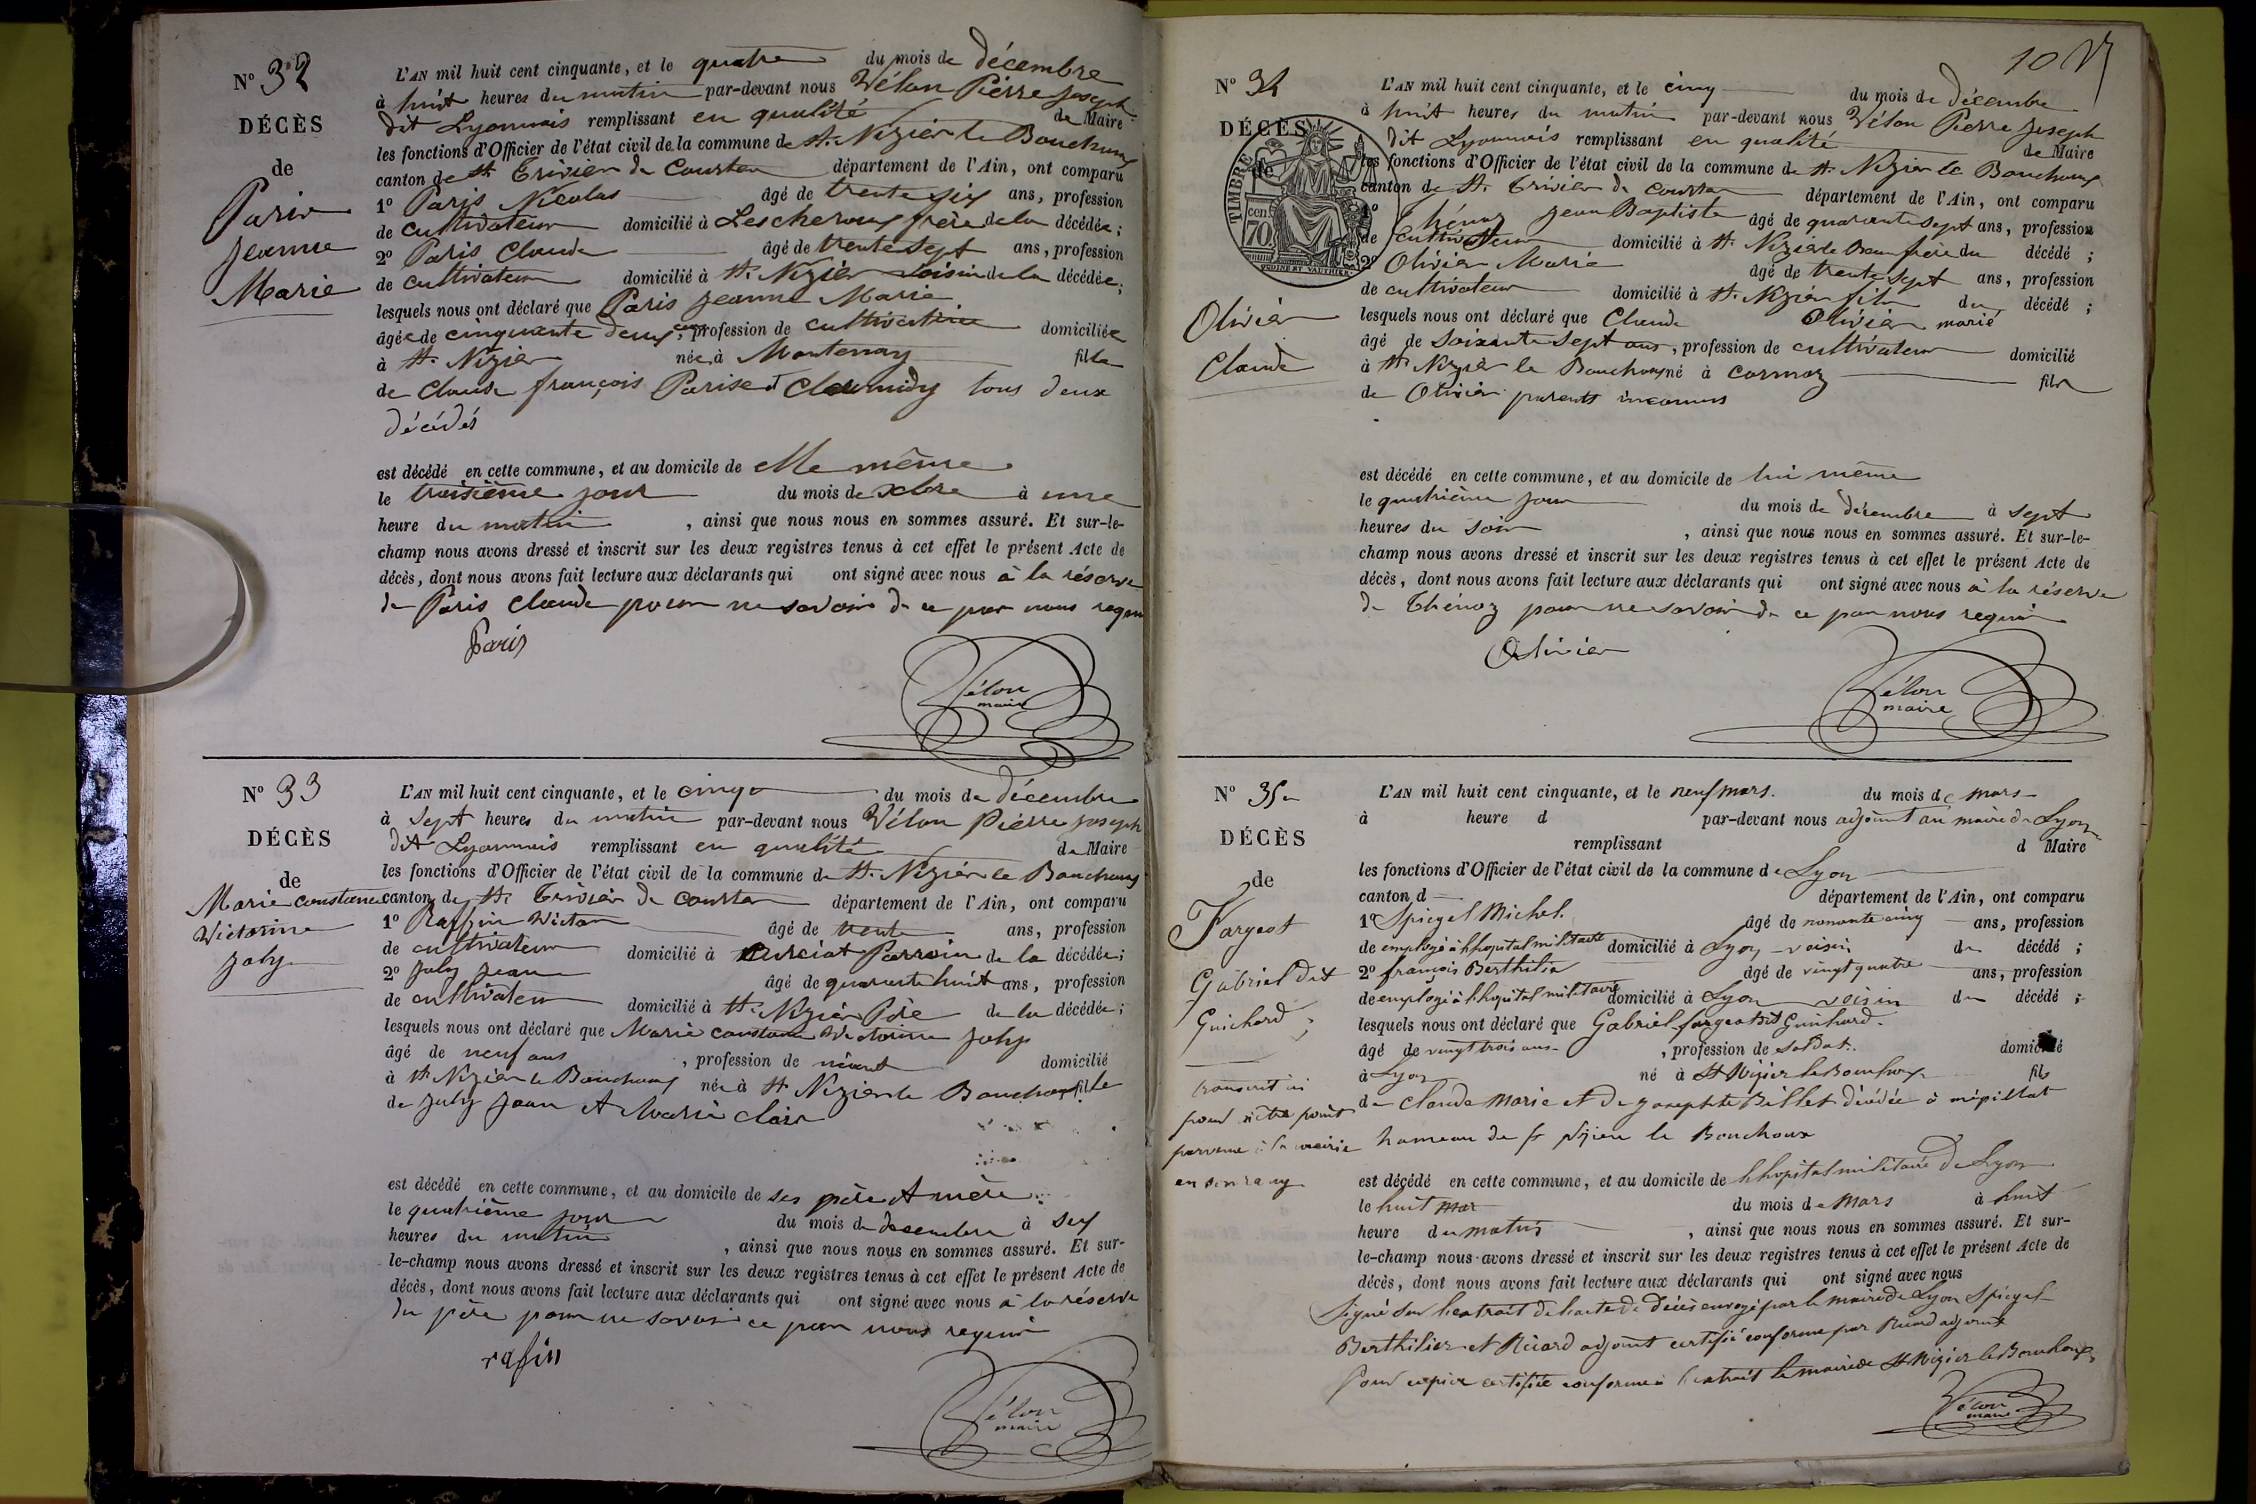 N° 32
DÉCÈS
de
Paris
Jeanne
Marie
L'AN mil huit cent cinquante, et le quatre du mois de décembre
à huit heures du matin par-devant nous Vélon Pierre Joseph
dit Lyonnais remplissant en qualité de Maire
les fonctions d'Officier de l'état civil de la commune de St. Nizier le Bouchoux
canton de St Trivier de Courtes département de l'Ain, ont comparu
1° Paris Nicolas âgé de trente six ans, profession
de cultivateur domicilié à Lescheroux frère de la décédée;
2° Paris Claude âgé de trente sept ans, profession
de cultivateur domicilié à St. Nizier voisin de la décédée;
lesquels nous ont déclaré que Paris Jeanne Marie
âgée de cinquante deux ans, profession de cultivatrice domiciliée
à St. Nizier née à Montenay fille
de Claude françois Paris et tous deux
décédés
est décédé en cette commune, et au domicile de elle même
le troisième jour du mois de xbre à une
heure du matin, ainsi que nous nous en sommes assuré. Et sur-le-
champ nous avons dressé et inscrit sur les deux registres tenus à cet effet le présent Acte de
décès, dont nous avons fait lecture aux déclarants qui ont signé avec nous à la réserve
de Paris Claude pour ne savoir de ce par nous requis
Paris
Vélon
maire
N° 33
DÉCÈS
de
Marie constance
Victorine
Joly
L'AN mil huit cent cinquante, et le cinq du mois de décembre
à sept heures du matin par-devant nous Vélon Pierre Joseph
dit Lyonnais remplissant en qualité de Maire
les fonctions d'Officier de l'état civil de la commune de St. Nizier le Bouchoux
canton de St Trivier de Courtes département de l'Ain, ont comparu
1° Raffin Victor âgé de trente ans, profession
de cultivateur domicilié à Curciat Parrain de la décédée;
2° Joly Jean âgé de quarante huit ans, profession
de cultivateur domicilié à St. Nizier Père de la décédée;
lesquels nous ont déclaré que Marie constance Victorine Joly
âgé de neuf ans, profession de néant domicilié
à St Nizier le Bouchoux née à St Nizier le Bouchoux fille
de Joly Jean et Marie Clair
est décédé en cette commune, et au domicile de ses père et mère
le quatrième jour du mois de decembre à six
heures du matin, ainsi que nous nous en sommes assuré. Et sur-
le-champ nous avons dressé et inscrit sur les deux registres tenus à cet effet le présent Acte de
décès, dont nous avons fait lecture aux déclarants qui ont signé avec nous à la réserve
du père pour ne savoir ce par nous requis
rafin
Vélon
maire
10
N° 34
DÉCÈS
de
TIMBRE
cen.
70.
Olivier
Claude
L'AN mil huit cent cinquante, et le cinq du mois de décembre
à huit heures du matin par-devant nous Vélon Pierre Joseph
dit Lyonnais remplissant en qualité de Maire
les fonctions d'Officier de l'état civil de la commune de St. Nizier le Bouchoux
canton de St. Trivier de Courtes département de l'Ain, ont comparu
1° Thénoz Jean Baptiste âgé de quarante sept ans, profession
de cultivateur domicilié à St. Nizier le Beau frère du décédé;
2° Olivier Marie âgé de trente sept ans, profession
de cultivateur domicilié à St. Nizier fils du décédé;
lesquels nous ont déclaré que Claude Olivier marié
âgé de soixante sept ans, profession de cultivateur domicilié
à St Nizier le Bouchoux né à Cormoz fils
de Olivier parents inconnus
est décédé en cette commune, et au domicile de lui même
le quatrième jour du mois de décembre à sept
heures du soir, ainsi que nous nous en sommes assuré. Et sur-le-
champ nous avons dressé et inscrit sur les deux registres tenus à cet effet le présent Acte de
décès, dont nous avons fait lecture aux déclarants qui ont signé avec nous à la réserve
de Thénoz pour ne savoir de ce par nous requis
Olivier
Vélon
maire
N° 35
DÉCÈS
de
Fargeot
Gabriel dit
Guichard;
transcrit ici
pour n'être point
parvenu à la mairie
en son rang
L'AN mil huit cent cinquante, et le neuf mars. du mois de mars
à heure d par-devant nous adjoint au maire de Lyon
remplissant d Maire
les fonctions d'Officier de l'état civil de la commune de Lyon
canton d département de l'Ain, ont comparu
1° Spiegel Michel. âgé de nonante cinq ans, profession
de employé à l'hopital militaire domicilié à Lyon voisin du décédé;
2° françois Berthilier âgé de vingt quatre ans, profession
de employé à l'hopital militaire domicilié à Lyon voisin du décédé;
lesquels nous ont déclaré que Gabriel fargeot dit Guichard.
âgé de vingt trois ans, profession de soldat. domicilié
à Lyon né à St Nizier le Bouchoux fils
de Claude Marie et de Josephte Billet décédée à mépillat
hameau de St Nizier le Bouchoux
est décédé en cette commune, et au domicile de l'hopital militaire de Lyon
le huit mar du mois de Mars à huit
heure du matin, ainsi que nous nous en sommes assuré. Et sur-
le-champ nous avons dressé et inscrit sur les deux registres tenus à cet effet le présent Acte de
décès, dont nous avons fait lecture aux déclarants qui ont signé avec nous
Signé sur l'extrait de l'acte de décès envoyé par le maire de Lyon Spiegel
Berthilier et Ricard adjoint certifié conforme par Ricard adjoint
Pour copie certifiée conforme à l'extrait le maire de St Nizier le Bouchoux
Vélon
maire